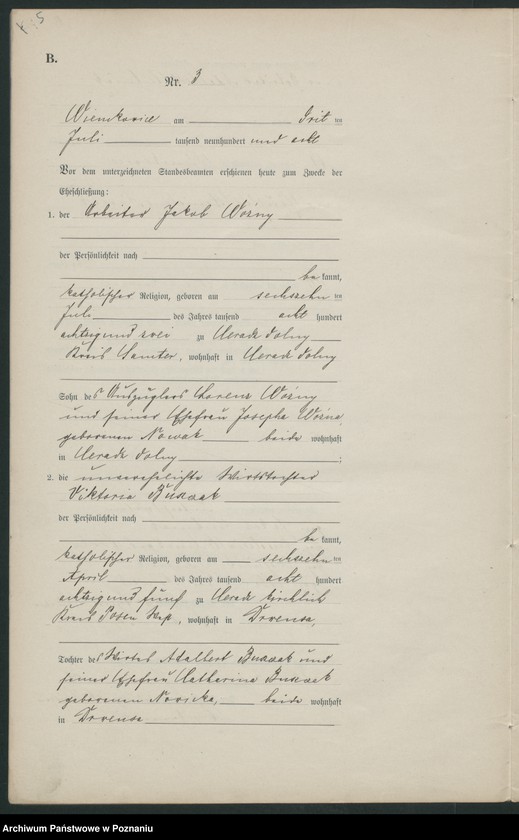 B.
Nr. 3
am ten
Juli tausend neunhundert und acht
Vor dem unterzeichneten Standesbeamten erschienen heute zum Zwecke der
Eheschließung:
1. der Arbeiter Jakob Woźny
der Persönlichkeit nach
be kannt,
katholischer Religion, geboren am sechszehn ten
Juli des Jahres tausend acht hundert
achtzig und zwei zu dolny
Kreis Samter, wohnhaft in dolny
Sohn des Auszüglers Lorenz Woźny
und seiner Ehefrau Josepha Woźna,
geborenen Nowak beide wohnhaft
in dolny ;
2. die unverehelichte Wirtstochter
Viktoria
der Persönlichkeit nach
be kannt,
katholischer Religion, geboren am sechszehn ten
April des Jahres tausend acht hundert
achtzig und fünf zu kirchlich
Kreis Posen West, wohnhaft in
Tochter des Wirtes Adalbert und
seiner Ehefrau Katharina
geborenen beide wohnhaft
in
Archiwum Państwowe w Poznaniu